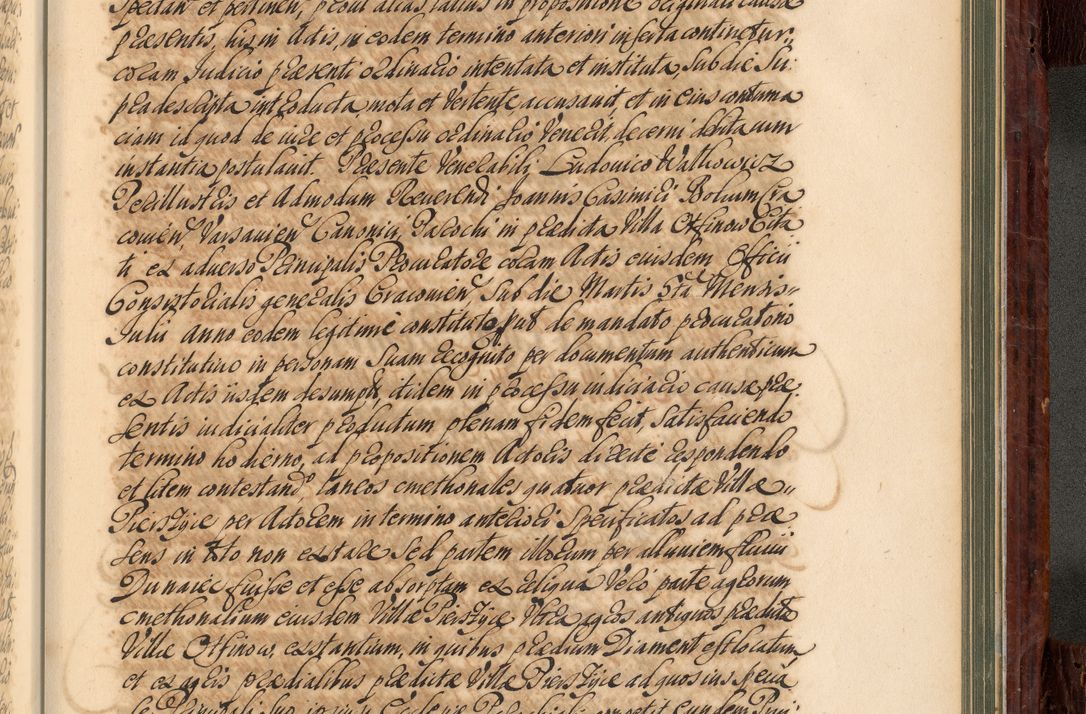 spectan et pertinen, prout alias latius in propositione originali causæ
præsentis, his in Actis, in eodem termino anteriori inserta continetur
coram Judicio præsenti ordinario intentata et instituta, sub die su:
pradescripta introducta, mota et Vertente accusavit, et in eius contuma
ciam id quod de iure et processu ordinario Venerit, decerni debita cum
instantia postulavit. Præsente Venerabili Ludovico Walkowicz
Perillustris et Admodum Reverendi Joannis Casimiri Bonum Cra
covien, Varsavien Canonici, Parochi in prædicta Villa Otfinow Cita
ti ex adverso Principalis Procuratore coram Actis eiusdem Officii
Consistorialis generalis Cracovien, sub die Martis 5ta Mensis
Julii Anno eodem legitime constituto, put de mandato procuratorio
constitutivo in personam Suam recognito per documentum authenticum
ex Actis iisdem desumpt, itidem in processu iudiciario causæ præ
sentis iudicialiter productum plenam fidem fecit, Satisfaciendo
termino hodierno, ad propositionem Actoris directe respondendo
et litem contestand, laneos cmethonales quatuor prædictæ Villæ
Pierszyce per Actorem in termino anteriori Specificatos ad præ
sens in toto non extare Sed partem illorum per alluviem fluvii
Dunaiec fuisse et esse absorptam ex reliqua Vero parte agrorum
cmethonalium eiusdem Villæ Pierszyce Ultra agros antiquos prædictæ
Villæ Otfinow, exstantium, in quibus prædium Diament est locatum
et ex agris prædialibus prædictæ Villæ Pierszyce ad quos ius